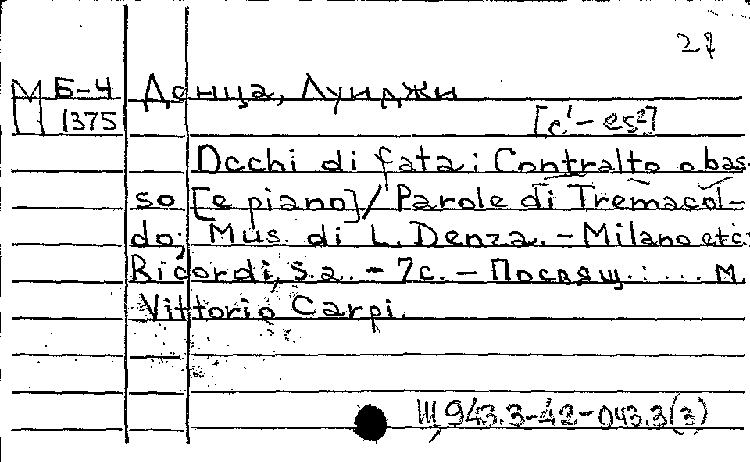 27
М Б-4 Денца, Луиджи
1375 [c¹-es²]
Occhi di fata: Contralto o bas-
so [e piano] / Parole di Tremacol-
do; Mus. di L. Denza. - Milano etc:
Ricordi, s.a. - 7c. - Посвящ.: ... M.
Vittorio Carpi.
Щ943.3-42-043.3(3)